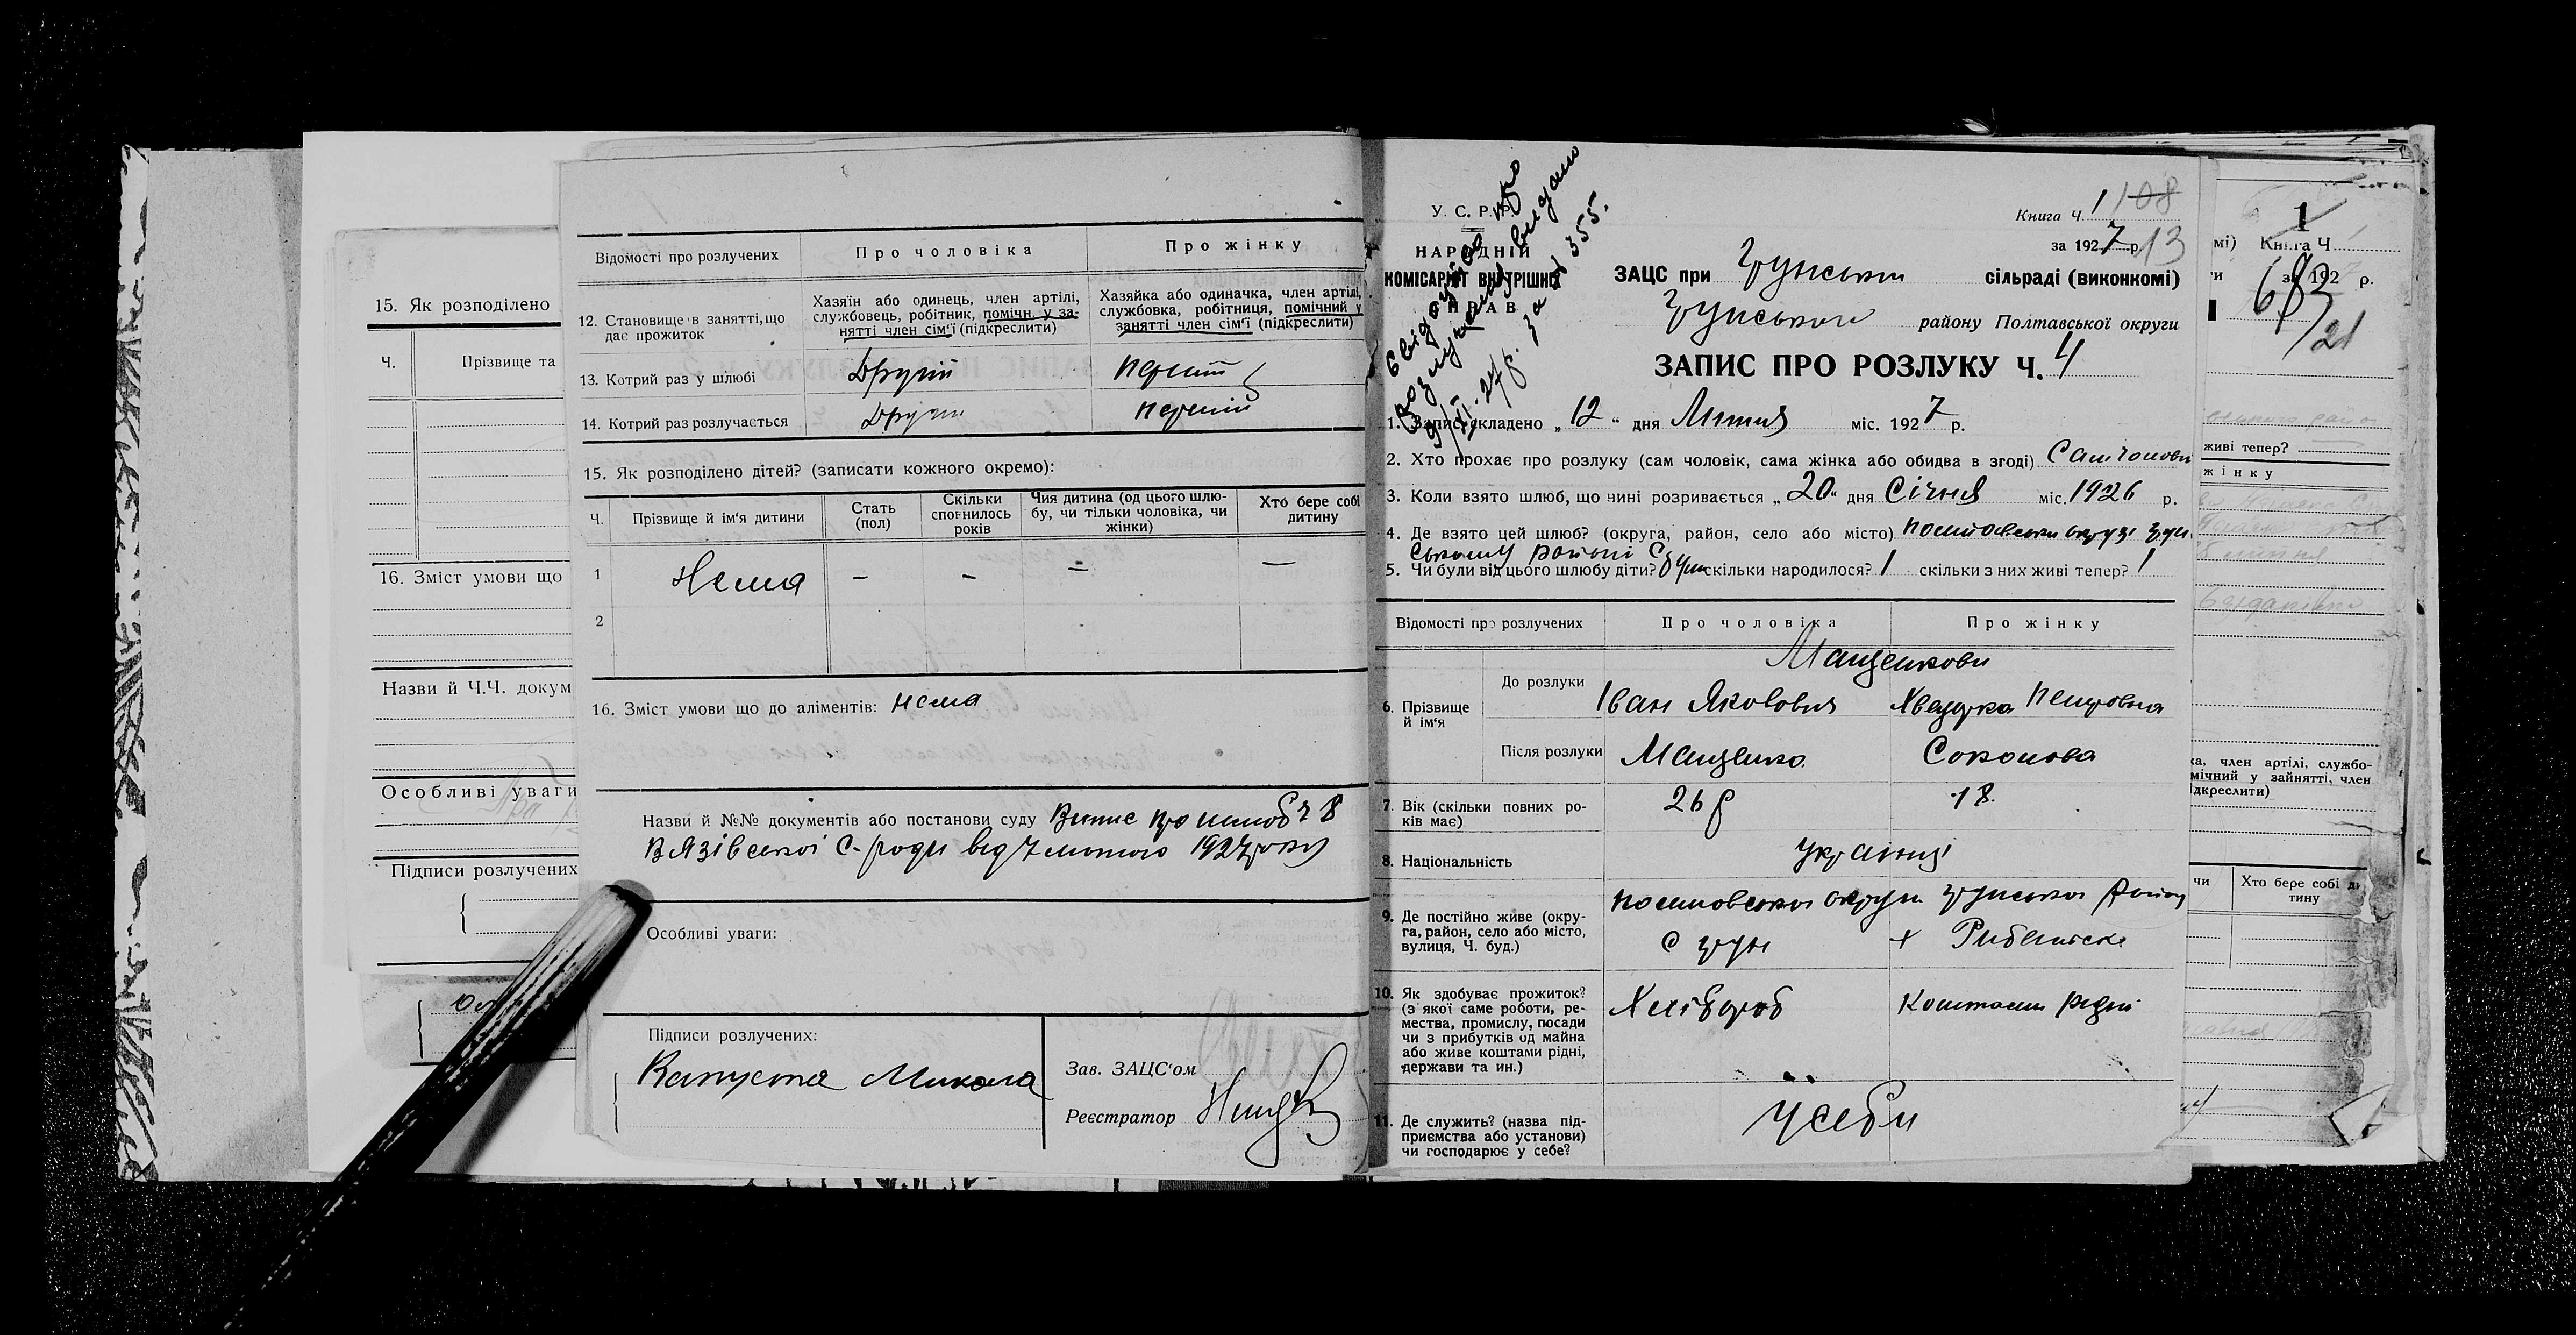 15. Як розподілено
Ч. Прізвище та
16. Зміст умови що
Назви й Ч.Ч. докум
Особливі уваги
Підписи розлучених
Відомості про розлучених Про чоловіка Про жінку
12. Становище в занятті, що дає прожиток
Хазяїн або одинець, член артілі,
службовець, робітник, помічн. у за-
нятті член сім'ї (підкреслити)
Хазяйка або одиначка, член артілі,
службовка, робітниця, помічний у
занятті член сім'ї (підкреслити)
13. Котрий раз у шлюбі Другий перший
14. Котрий раз розлучається Другий перший
15. Як розподілено дітей? (записати кожного окремо):
Ч. Прізвище й ім'я дитини
Стать
(пол)
Скільки
сповнилось
років
Чия дитина (од цього шлю-
бу, чи тільки чоловіка, чи
жінки)
Хто бере собі
дитину
1 Нема – – – –
2
16. Зміст умови що до аліментів: нема
Назви й №№ документів або постанови суду Випис про шлюб ч 8
Вязівської С-ради від 7 лютого 1927 року
Особливі уваги:
Підписи розлучених:
Капуста Микола
Зав. ЗАЦС'ом
Реєстратор
У. С. Р. Р.
НАРОДНІЙ
КОМІСАРІЯТ ВНУТРІШНІХ
СПРАВ
Свідоцтво про
розлуку видано
за № 355.
Книга ч. 1 108
за 1927 р. 13
ЗАЦС при Грунській сільраді (виконкомі)
Грунського району Полтавської округи
ЗАПИС ПРО РОЗЛУКУ Ч. 4
1. Запис складено „12“ дня Липня міс. 1927 р.
2. Хто прохає про розлуку (сам чоловік, сама жінка або обидва в згоді) Сам чоловік
3. Коли взято шлюб, що нині розривається „20“ дня Січня міс. 1926 р.
4. Де взято цей шлюб? (округа, район, село або місто) Полтавськи округі Грун
ському районі С.
5. Чи були від цього шлюбу діти? були скільки народилося? 1 скільки з них живі тепер? 1
Відомості про розлучених Про чоловіка Про жінку
6. Прізвище
й ім'я
До розлуки
Мащенкови
Іван Якович Хведорка Петровна
Після розлуки Мащенко Соколова
7. Вік (скільки повних ро-
ків має)
26 р 18
8. Національність Українці
9. Де постійно живе (окру-
га, район, село або місто,
вулиця, Ч. буд.)
Полтавської округи Грунського району
с Грун х
10. Як здобуває прожиток?
(з якої саме роботи, ре-
мества, промислу, посади
чи з прибутків од майна
або живе коштами рідні,
держави та ин.)
Хлібороб Коштами рідні
11. Де служить? (назва під-
приємства або установи)
чи господарює у себе?
У себи
1
мі) Книга Ч
за 192 р.
683
21
живі тепер?
жінку
ка, член артілі, службо-
мічний у зайнятті, член
ідкреслити)
чи Хто бере собі ди
тину